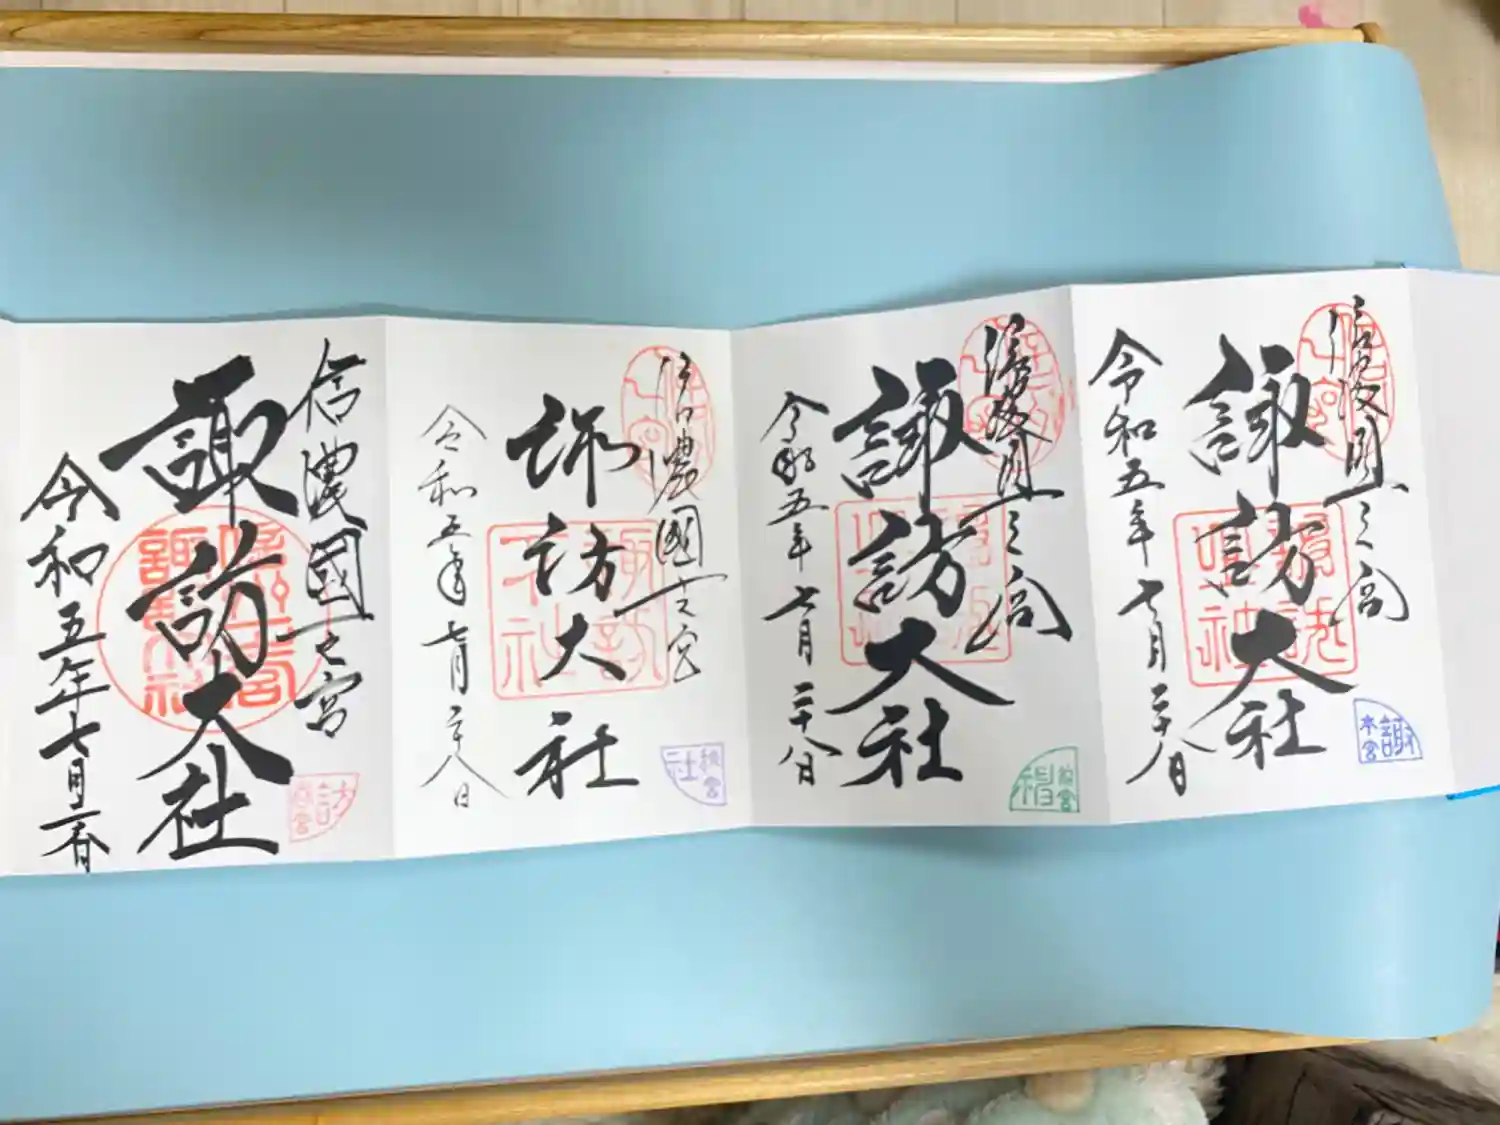 信濃國一之宮
諏訪大社
令和五年七月二十八日
本宮
諏
信濃國一之宮
諏訪大社
令和五年七月二十八日
信濃國一之宮
諏訪大社
令和五年七月二十八日
社
信濃國一之宮
諏訪大社
令和五年七月
訪